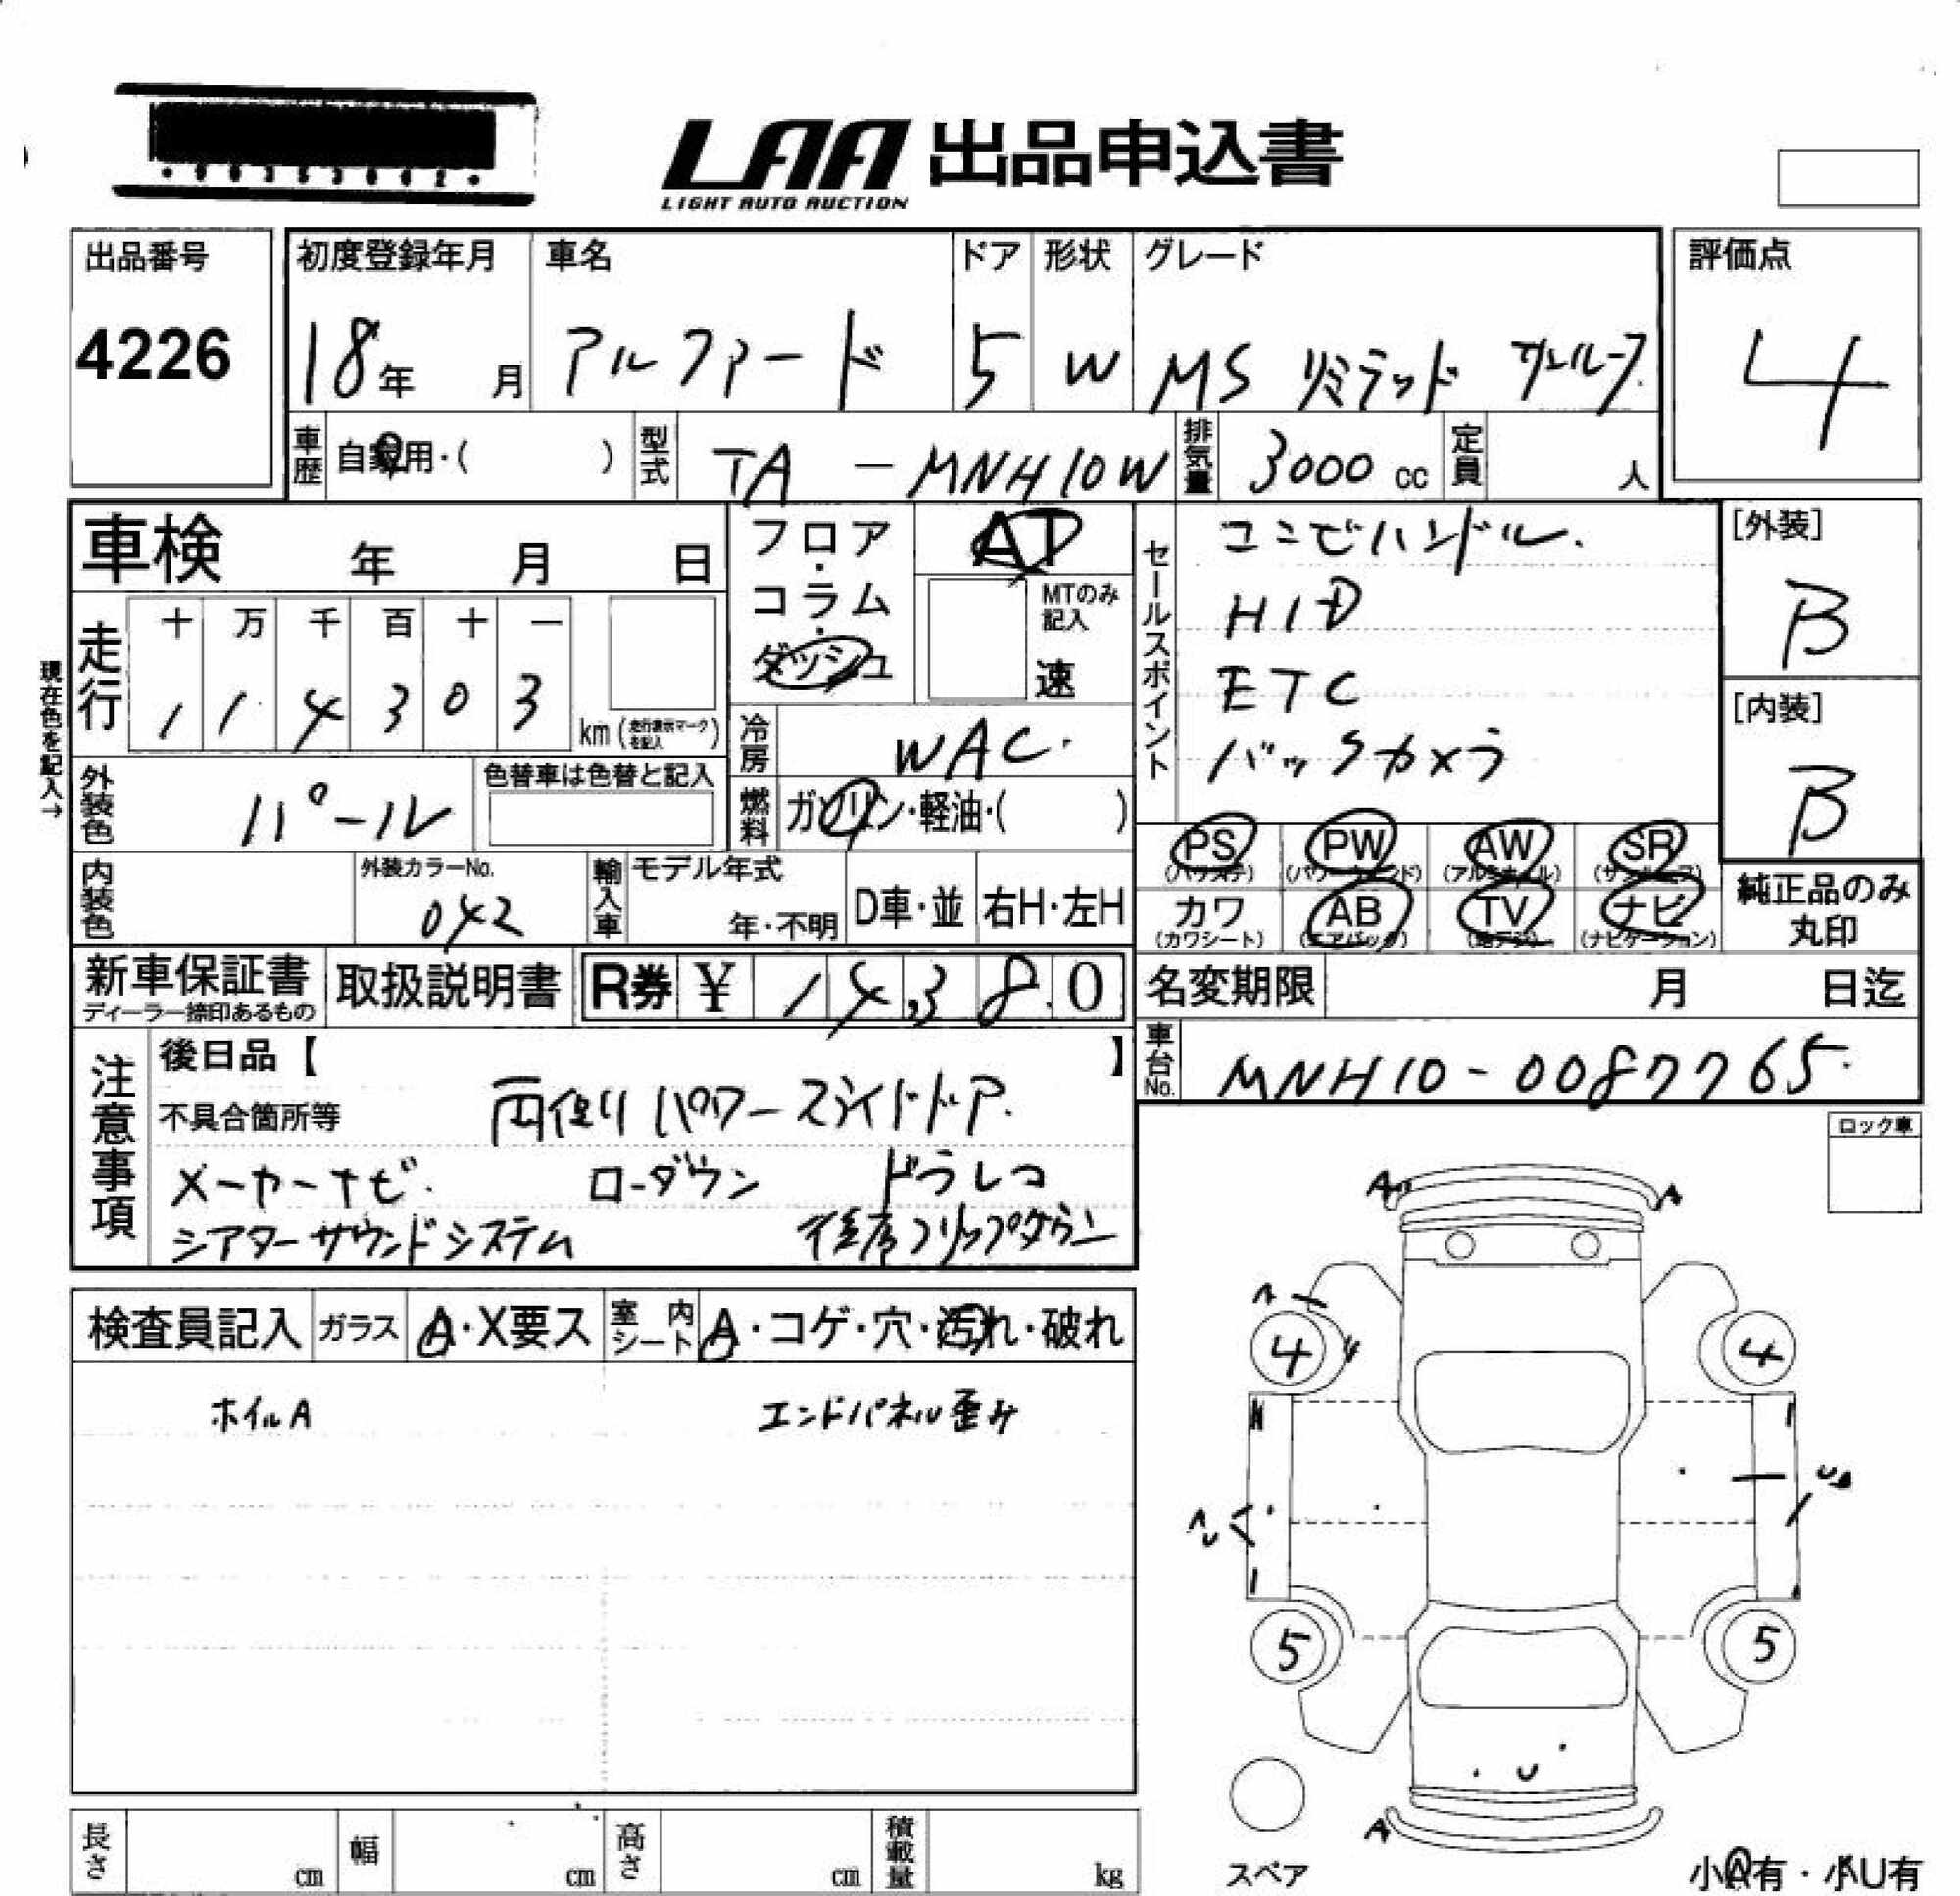 LAA 出品申込書
LIGHT AUTO AUCTION
出品番号
4226
初度登録年月
18年 月
車名
アルファード
ドア
5
形状
W
グレード
MS リミテッド
評価点
4
車歴 自家用・( )
型式 TA-MNH10W
排気量 3000 cc
定員 人
車検 年 月 日
走行
十 万 千 百 十 一
1 1 4 3 0 3 km (走行表示マークを記入)
現在色を記入→
外装色 パール
色替車は色替と記入
内装色
外装カラーNo.
042
フロア・コラム・ダッシュ
AT
MTのみ記入
速
冷房 WAC.
燃料 ガソリン・軽油・( )
輸入車 モデル年式
年・不明
D車・並
右H・左H
セールスポイント
コンビハンドル.
HID
ETC
バックカメラ
[外装]
B
[内装]
B
PS (パワステ)
PW (パワーウィンド)
AW (アルミホイル)
SR (サンルーフ)
カワ (カワシート)
AB (エアバック)
TV (地デジ)
ナビ (ナビゲーション)
純正品のみ丸印
新車保証書
ディーラー捺印あるもの
取扱説明書
R券 ¥ 14,380
名変期限 月 日迄
車台No. MNH10-0087765.
注意事項
後日品【 】
不具合箇所等
両側パワースライドドア.
メーカーナビ. ローダウン ドラレコ
シアターサウンドシステム 後席フリップダウン
ロック車
検査員記入
ガラス A・X要ス
室内シート A・コゲ・穴・汚れ・破れ
ホイルA エンドパネル歪み
A A
4 4
5 5
U
A
スペア
小A有・小U有
長さ cm
幅 cm
高さ cm
積載量 kg